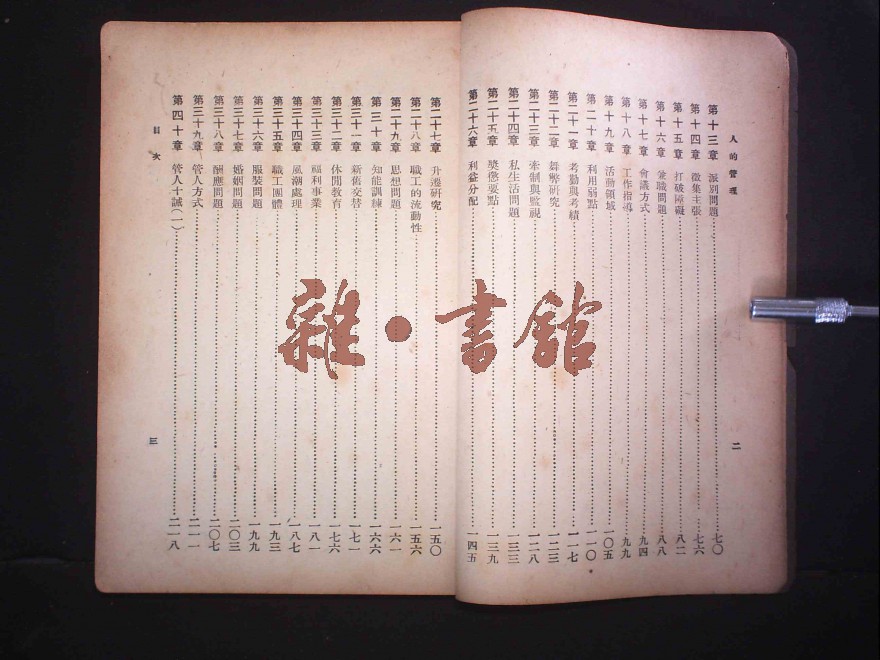 人的管理
第十三章 派別問題 七〇
第十四章 徵集主張 七六
第十五章 打破障礙 八二
第十六章 兼職問題 八八
第十七章 會議方式 九四
第十八章 工作指導 九九
第十九章 活動領域 一〇五
第二十章 利用弱點 一一〇
第二十一章 考勤與考績 一一七
第二十二章 舞弊研究 一二三
第二十三章 牽制與監視 一二八
第二十四章 私生活問題 一三三
第二十五章 獎懲要點 一三九
第二十六章 利益分配 一四五
二
第二十七章 升遷研究 一五〇
第二十八章 職工的流動性 一五六
第二十九章 思想問題 一六一
第三十章 知能訓練 一六六
第三十一章 新舊交替 一七一
第三十二章 休閒教育 一七六
第三十三章 福利事業 一八一
第三十四章 風潮處理 一八七
第三十五章 職工團體 一九三
第三十六章 服裝問題 一九九
第三十七章 婚姻問題 二〇三
第三十八章 酬應問題 二〇七
第三十九章 管人方式 二一一
第四十章 管人十誡(一) 二一八
目次
三
雜·書館